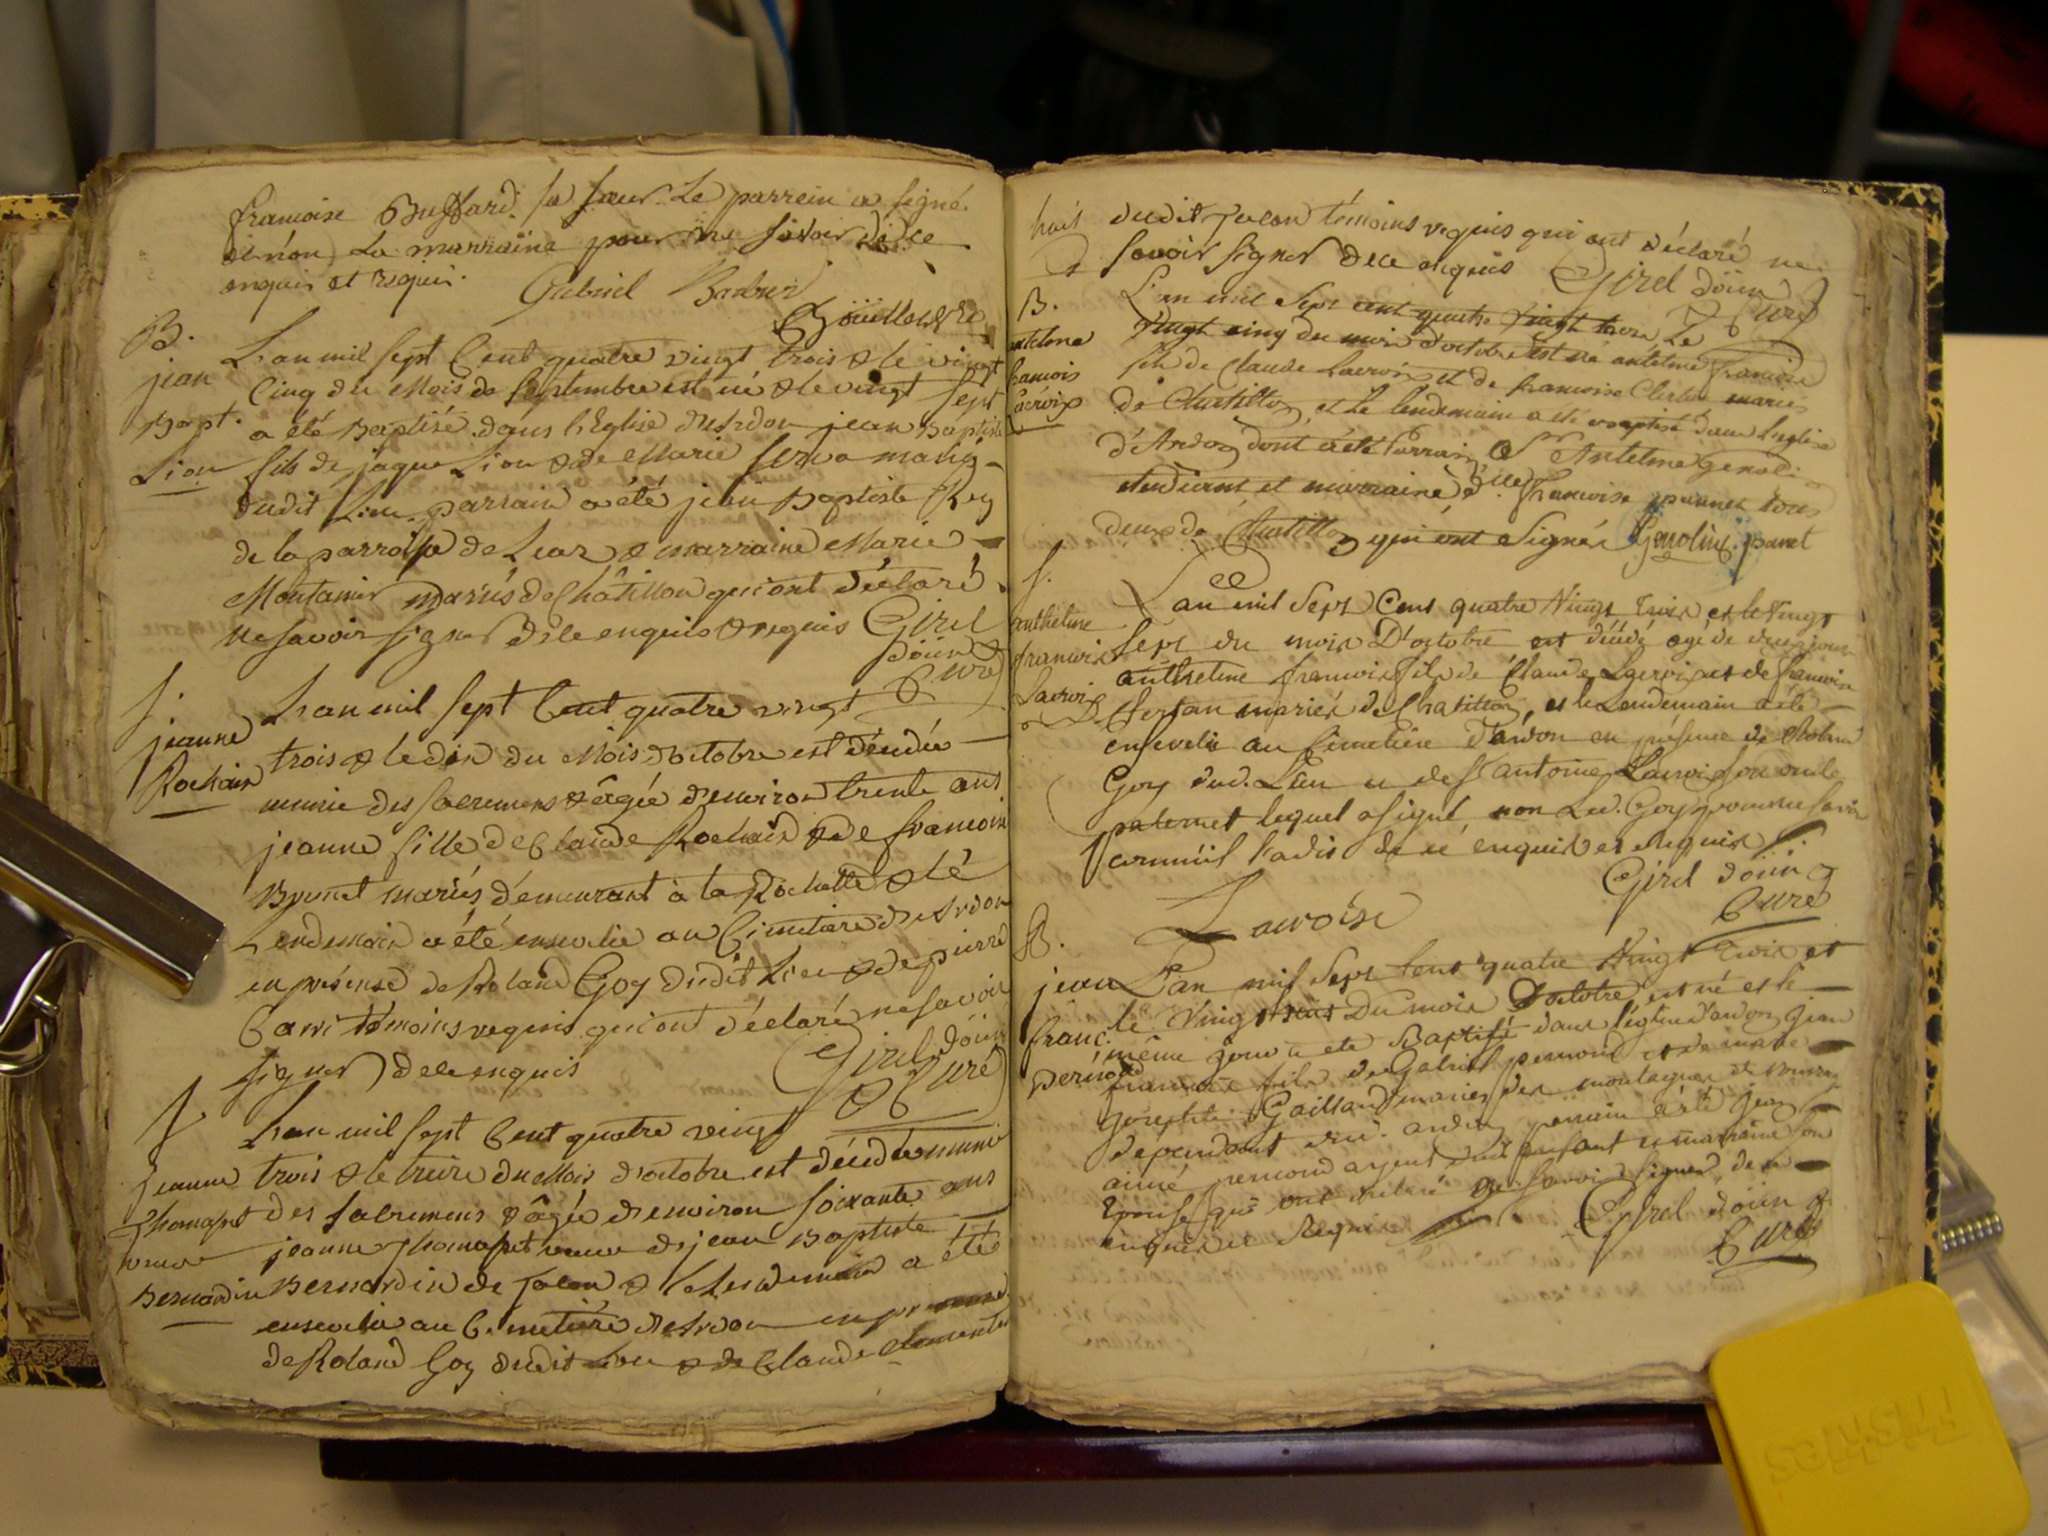 francoise Buffard sa soeur. Le parrein a signé.
et non La marraine pour ne savoir de ce
enquis et requis.
Gabriel Barbier
B.
jean
Bapt.
Lion
L'an mil sept Cent quatre vingt trois & le vingt
Cinq du Mois de Septembre est né & le vingt sept
a été Baptisé dans l'Eglise d'Ardon jean Baptiste
fils de jaque Lion & de Marie mariés
dudit Lieu. parrain a été jean Baptiste Rey
de la parroisse de & marraine Marie
Montanier mariés de Châtillon qui ont déclaré
ne savoir signer de ce enquis & requis Girel
doüin
Curé
S.
jeanne
Rochaix
L'an mil sept Cent quatre vingt
trois & le dix du Mois d'octobre est décédée
munie des sacremens & âgée d'environ trente ans
jeanne fille de Claude Rochaix & de francoise
Brunet mariés demeurant à la Rochette & le
Lendemain a été ensevelie au Cimetiere d'Ardon
en présense de Roland Goy dudit Lieu & de pierre
témoins requis qui ont déclaré ne savoir
signer de ce enquis Girel doüin
Curé
S.
jeanne
veuve
Bernardin
L'an mil sept Cent quatre vingt
trois & le treize du Mois d'octobre est décédée munie
des sacremens & âgée d'environ soixante ans
jeanne veuve de jean Baptiste
Bernardin de & le Lendemain a été
ensevelie au Cimetière d'Ardon en presense
de Roland Goy dudit Lieu & de Claude
dudit témoins requis qui ont déclaré ne
savoir signer de ce enquis Girel doüin
Curé
B.
antelme
francois
Lacroix
L'an mil sept cent quatre vingt trois Le
vingt cinq du mois d'octobre est né antelme francois
fils de Claude Lacroix et de francoise mariés
de Chatillon et le lendemain a été baptisé dans l'eglise
d'Ardon dont a été Parrain Sr Antelme Genolin
etudiant et marraine dlle francoise panet tous
deux de Chatillon qui ont Signés Genolin. panet
S.
anthelme
francois
Lacroix
L'an mil Sept Cent quatre Vingt trois et le Vingt
Sept du mois D'octobre est décédé agé de deux jours
anthelme francois fils de Claude Lacroix et de francoise
mariés de Chatillon, et le Lendemain a été
ensevelis au Cimetière d'ardon en présence de Roland
Goy dud. Lieu et de Sr antoine Lacroix son oncle
paternel lequel a signé, non Led. Goy pour ne savoir
de ce enquis et requis
Girel doüin
Curé
Lacroix
B.
jean
franc.
pernod
L'an mil Sept Cent quatre Vingt trois et
le Vingt huit Du mois D'octobre est né et le
même jour a été Baptisé dans l'église d'ardon jean
francois fils de Gabriel pernod et de marie
josephte Gaillard mariés des montagnes
dependant dud. ardon parrain a été jean
aimé pernod et marraine son
Epouse qui ont déclaré ne savoir signer, de ce
enquis et Requis Girel doüin
Curé